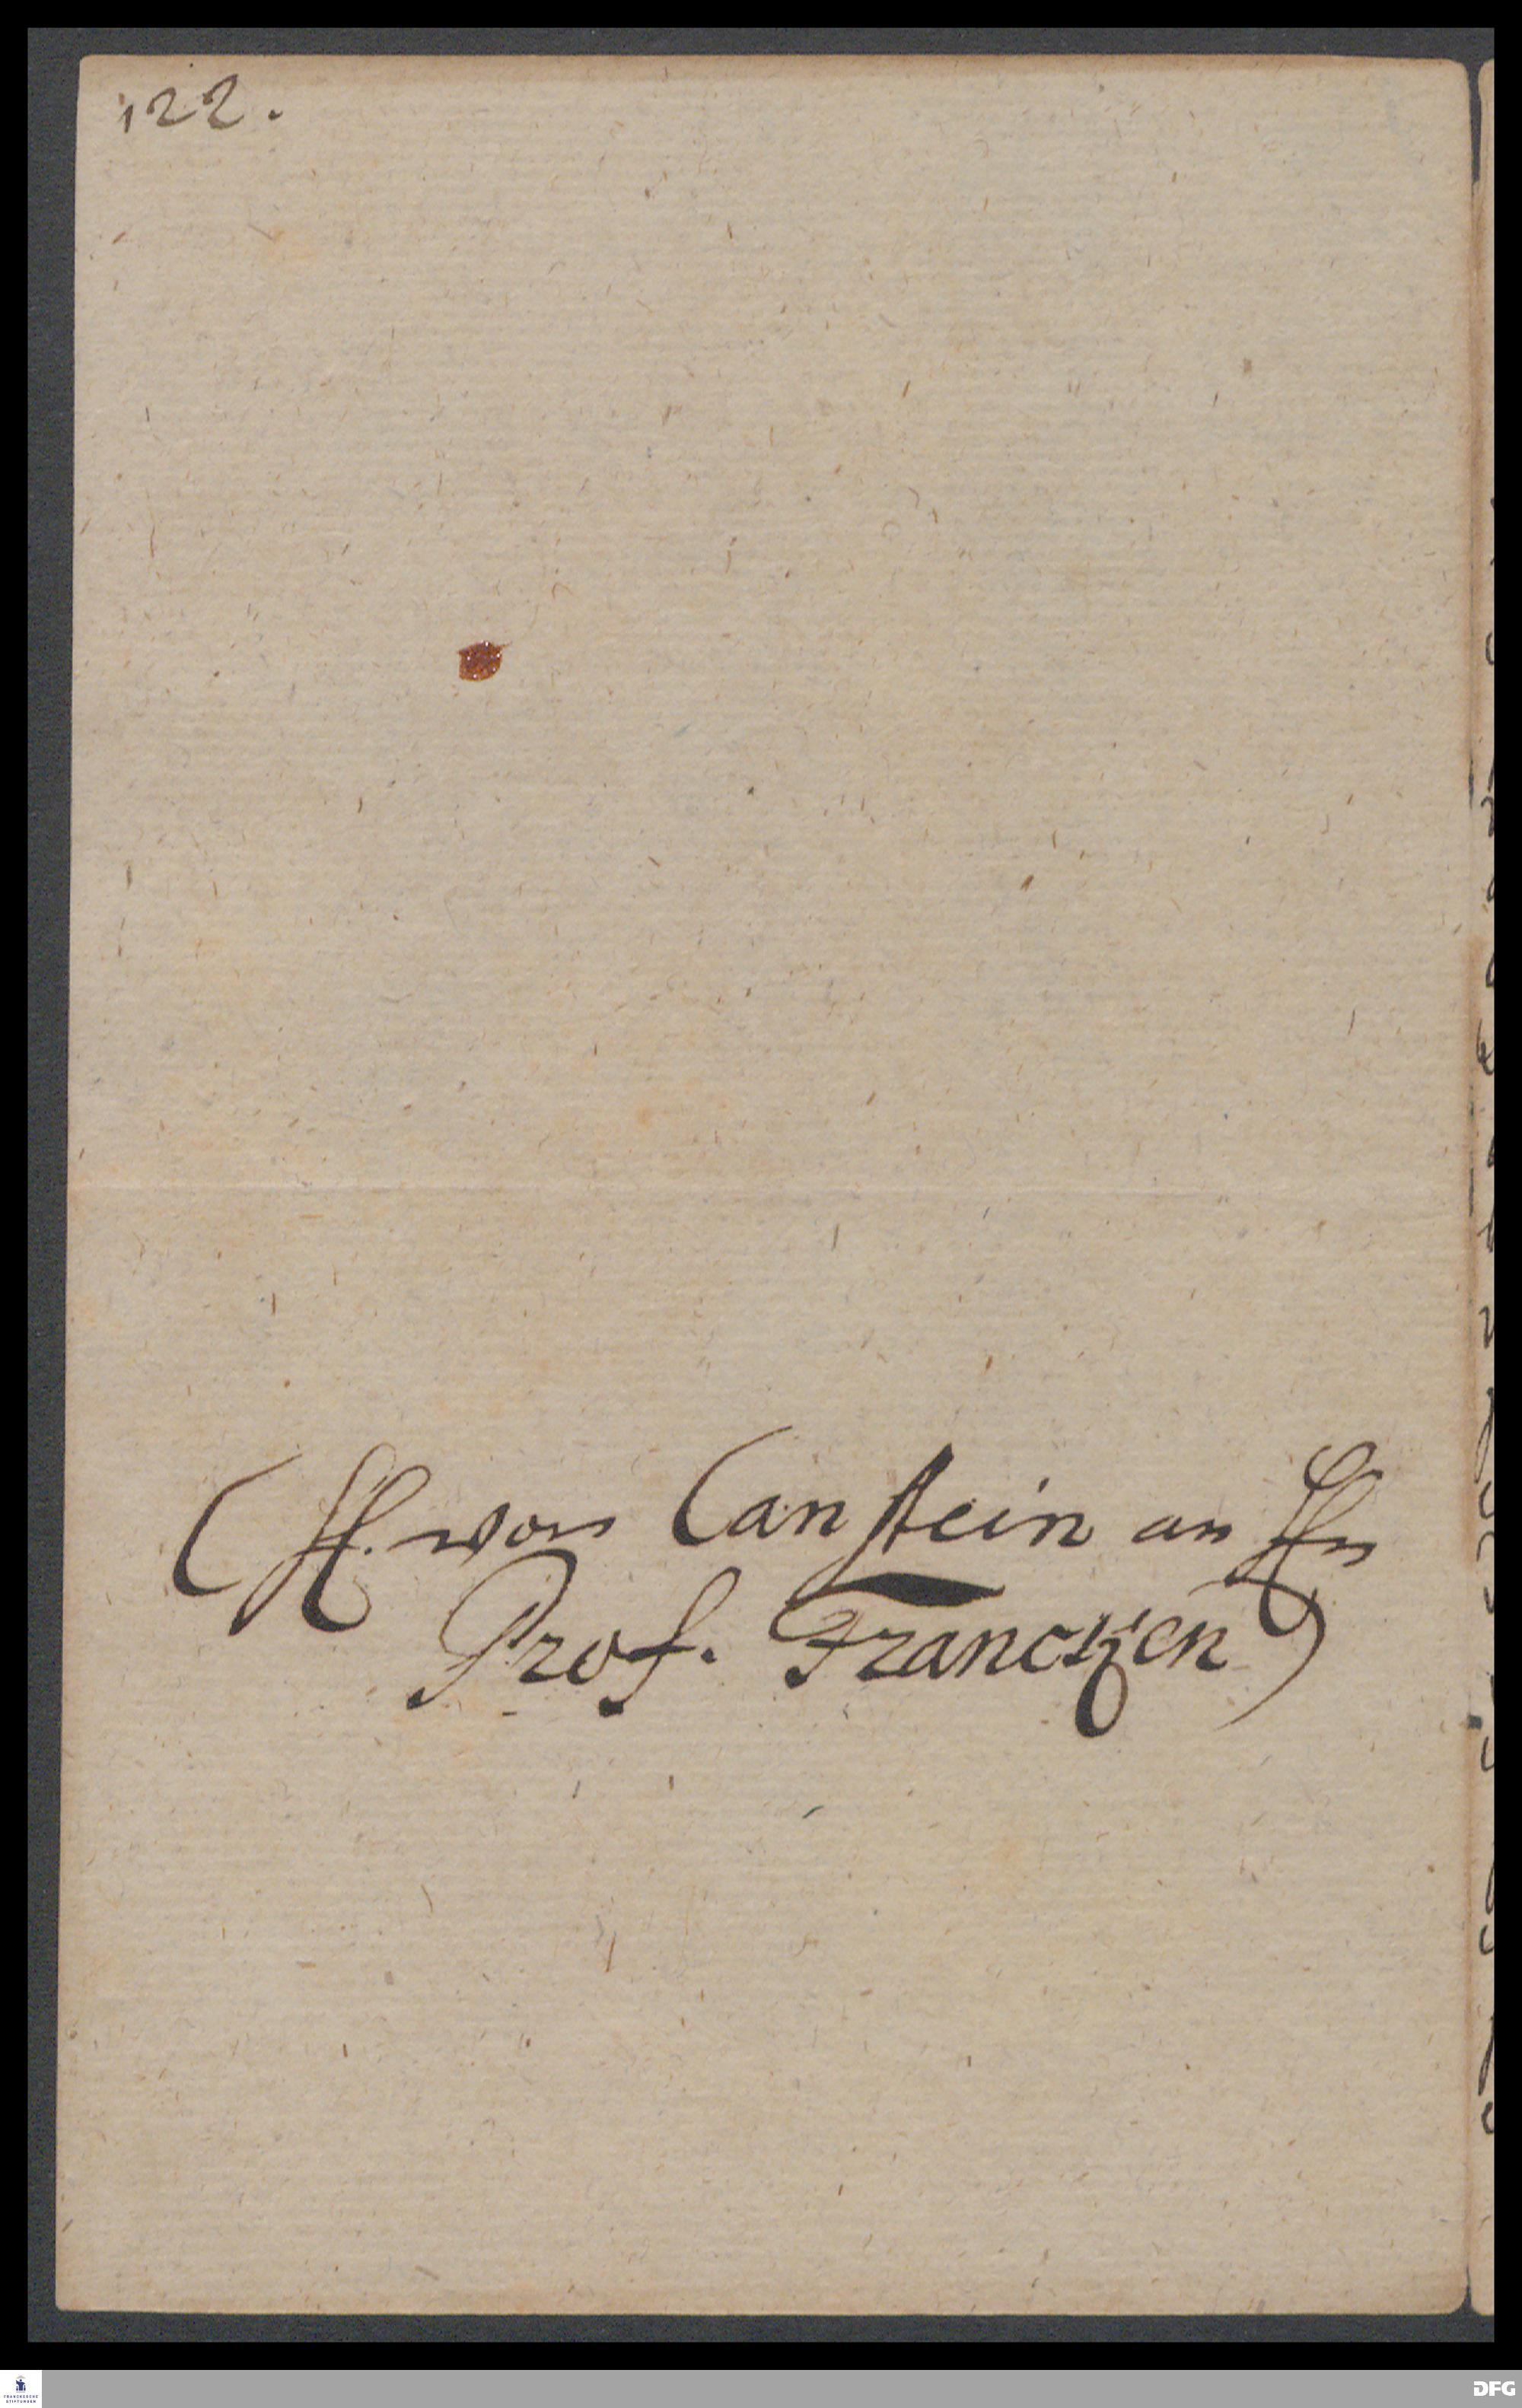 122.
(H. von Canstein an Hn
Prof. Francken)
FRANCKESCHE
STIFTUNGEN
DFG